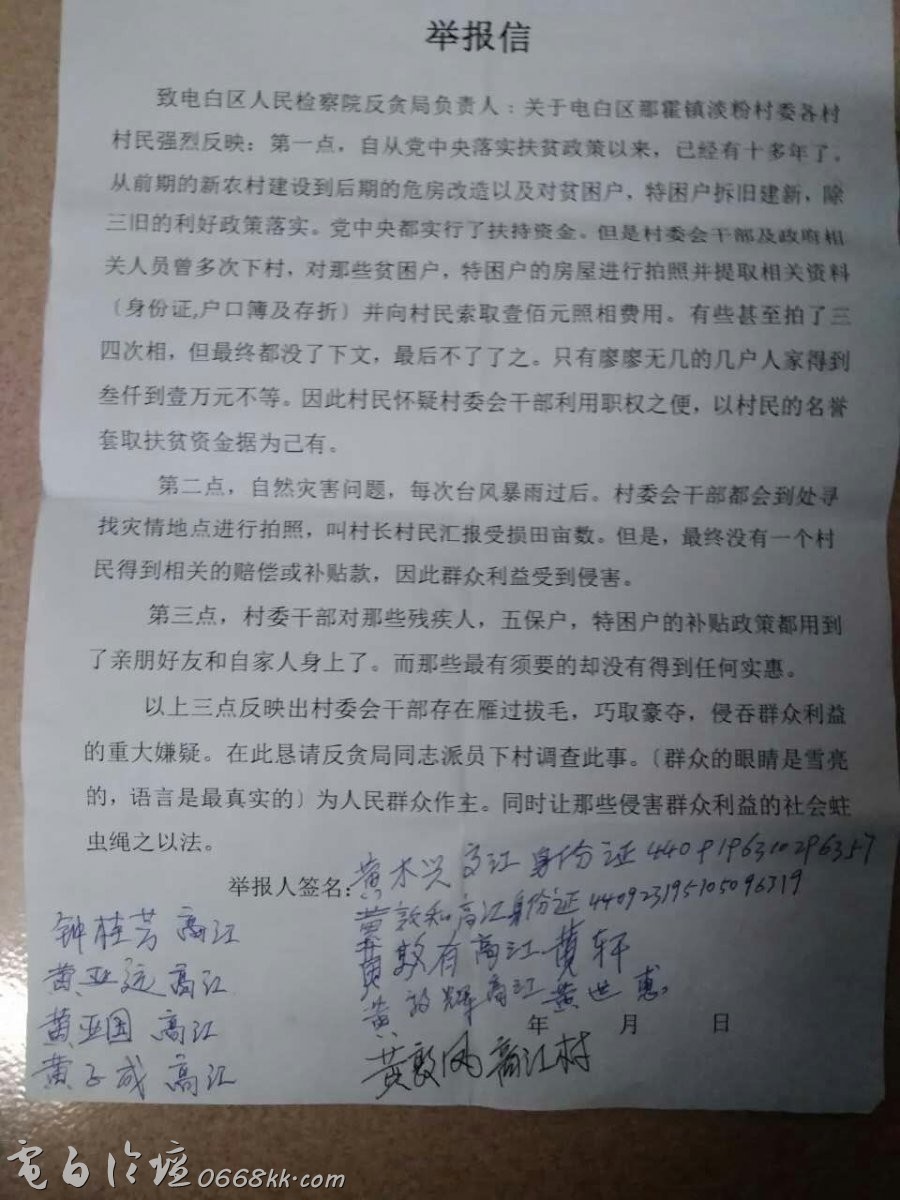 举报信
致电白区人民检察院反贪局负责人：关于电白区那霍镇淡粉村委各村
村民强烈反映：第一点，自从党中央落实扶贫政策以来，已经有十多年了。
从前期的新农村建设到后期的危房改造以及对贫困户，特困户拆旧建新，除
三旧的利好政策落实。党中央都实行了扶持资金。但是村委会干部及政府相
关人员曾多次下村，对那些贫困户，特困户的房屋进行拍照并提取相关资料
〔身份证,户口簿及存折〕并向村民索取壹佰元照相费用。有些甚至拍了三
四次相，但最终都没了下文，最后不了了之。只有廖廖无几的几户人家得到
叁仟到壹万元不等。因此村民怀疑村委会干部利用职权之便，以村民的名誉
套取扶贫资金据为己有。
第二点，自然灾害问题，每次台风暴雨过后。村委会干部都会到处寻
找灾情地点进行拍照，叫村长村民汇报受损田亩数。但是，最终没有一个村
民得到相关的赔偿或补贴款，因此群众利益受到侵害。
第三点，村委干部对那些残疾人，五保户，特困户的补贴政策都用到
了亲朋好友和自家人身上了。而那些最有须要的却没有得到任何实惠。
以上三点反映出村委会干部存在雁过拔毛，巧取豪夺，侵吞群众利益
的重大嫌疑。在此恳请反贪局同志派员下村调查此事。〔群众的眼睛是雪亮
的，语言是最真实的〕为人民群众作主。同时让那些侵害群众利益的社会蛀
虫绳之以法。
举报人签名：黄木兴 高江 身份证
黄敦和高江身份证
黄敦有高江 黄轩
黄 辉高江 黄世惠
年 月 日
黄敦凤 高江村
钟桂芳 高江
黄亚 高江
黄亚国 高江
黄子成 高江
電白论壇 0668kk.com